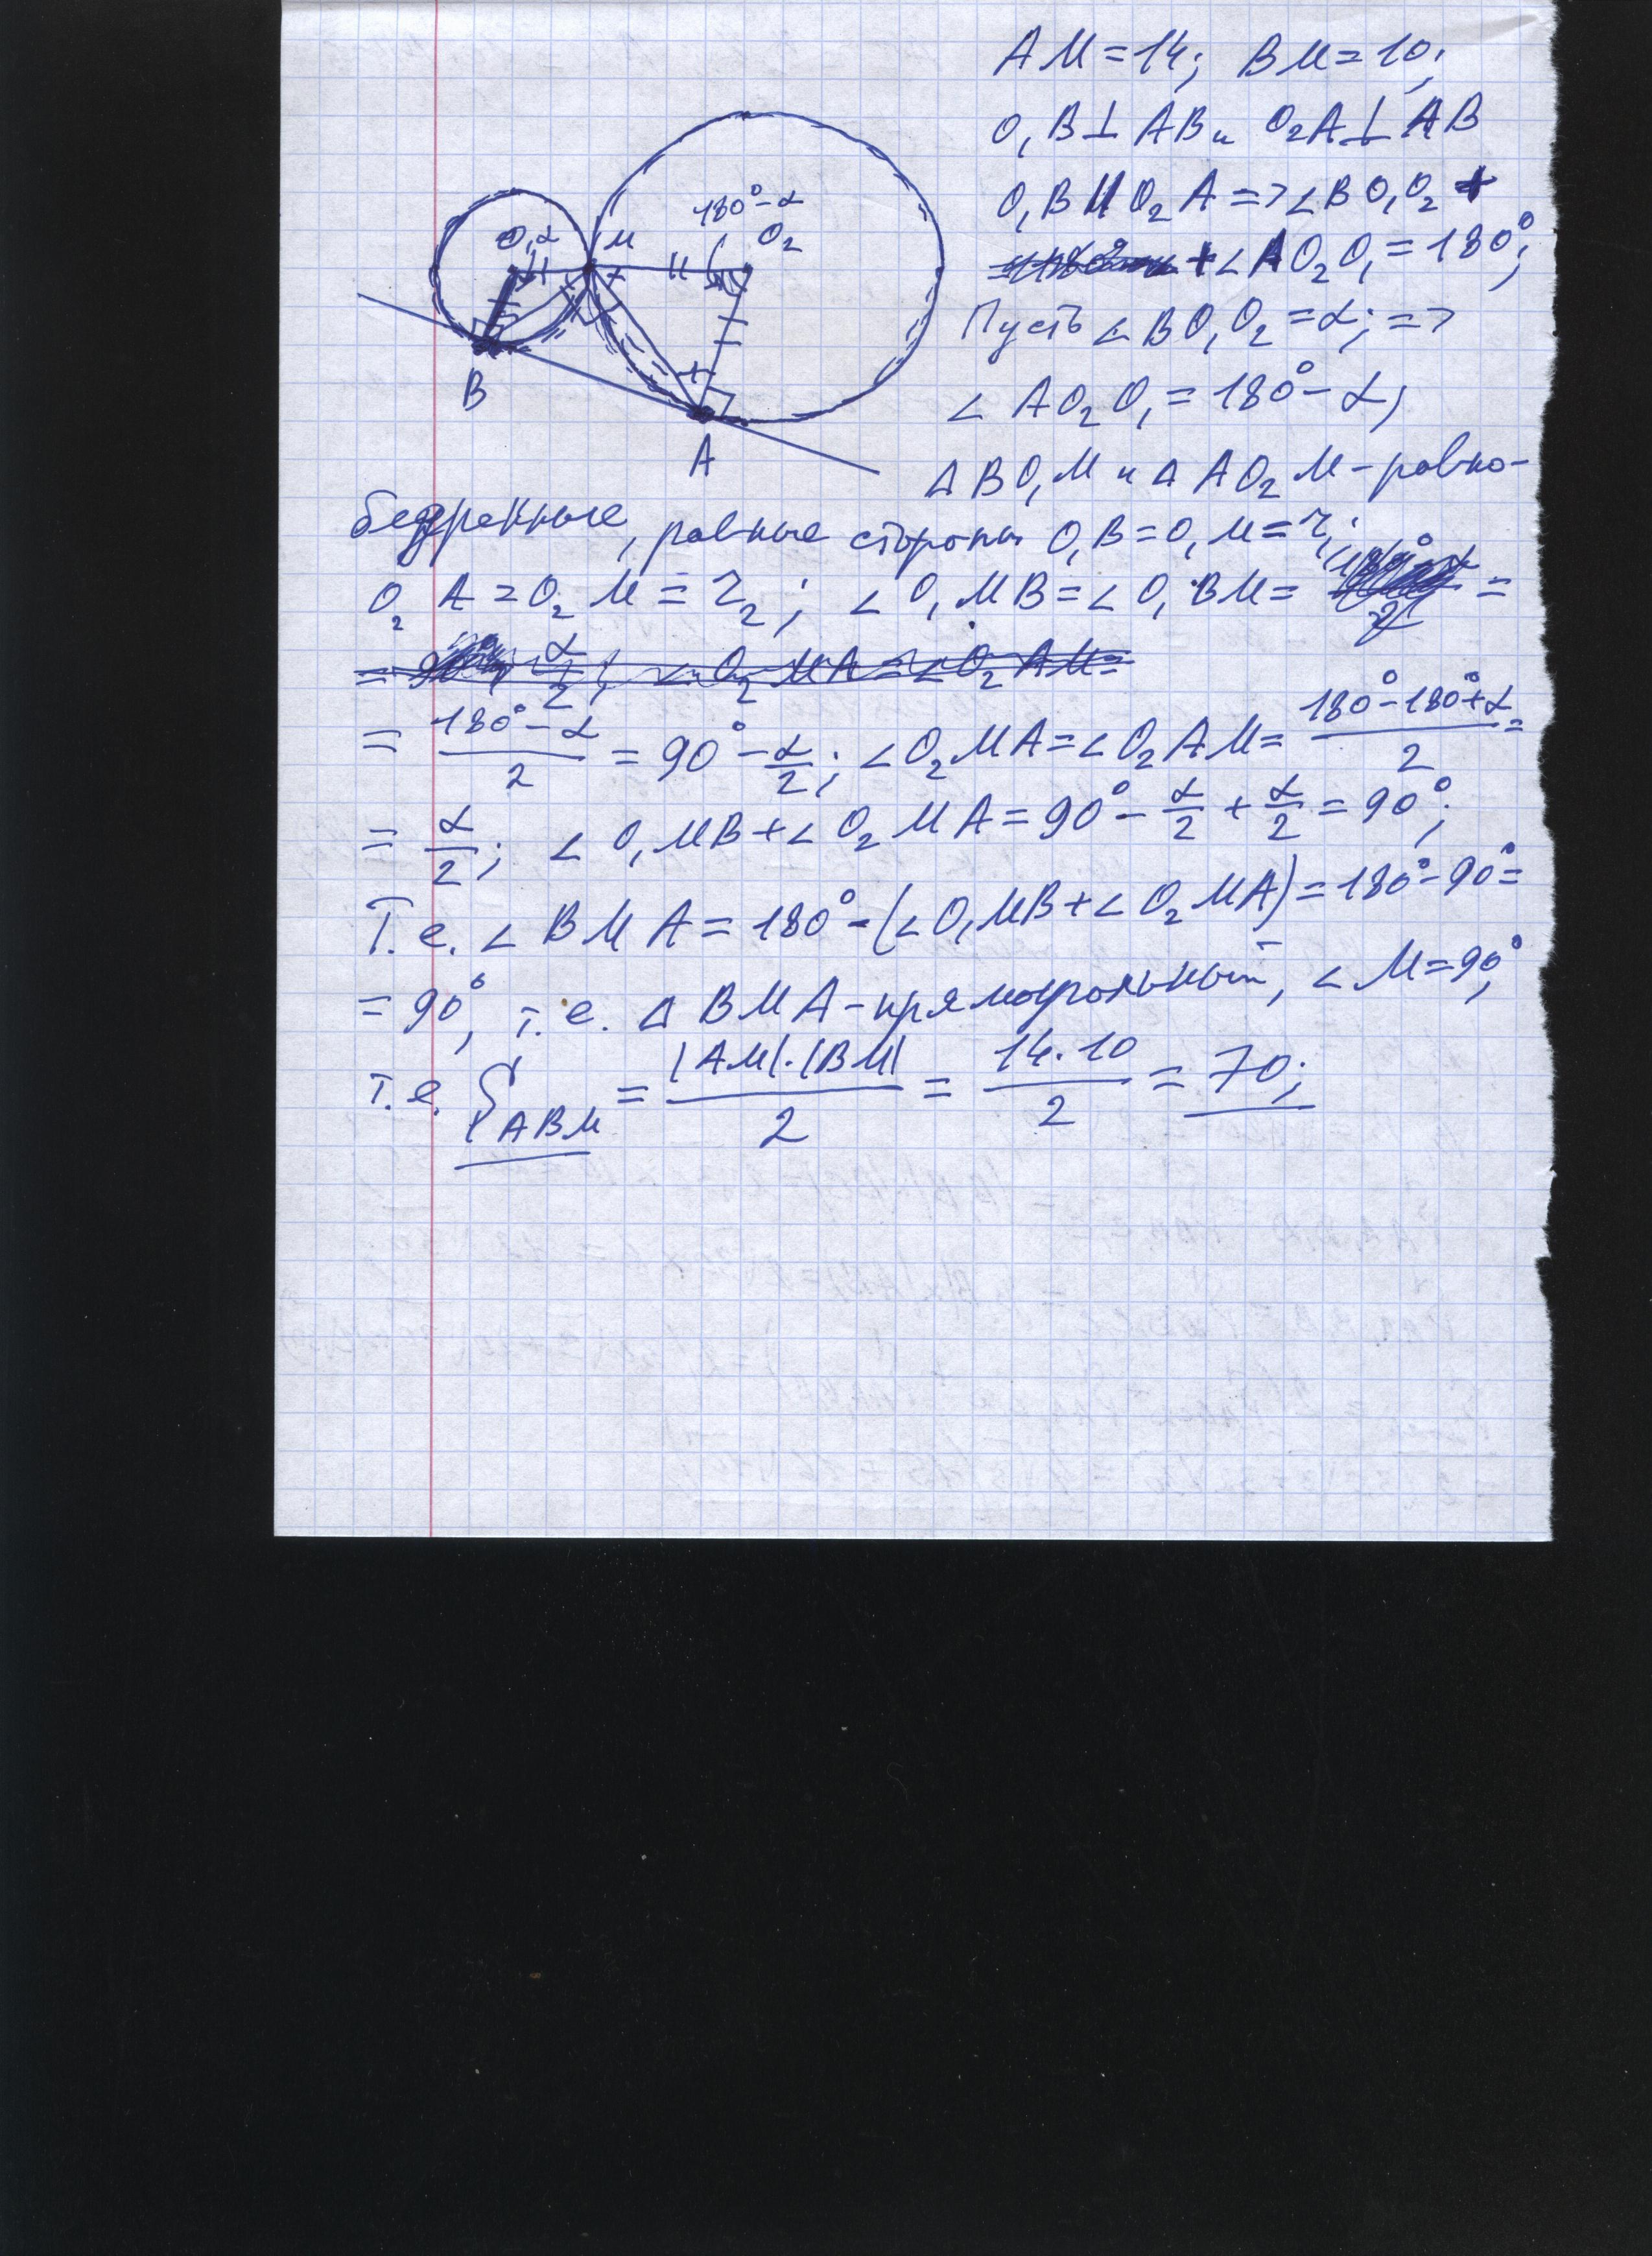 AM = 14; BM = 10;
O₁B ⊥ AB и O₂A ⊥ AB
O₁B || O₂A => ∠BO₁O₂ +
+ ∠AO₂O₁ = 180°;
Пусть ∠BO₁O₂ = α; =>
∠AO₂O₁ = 180° - α;
Δ BO₁M и Δ AO₂M - равно-
бедренные, равные стороны O₁B = O₁M = r₁;
O₂A = O₂M = r₂; ∠O₁MB = ∠O₁BM = =
= (180° - α)/2 = 90° - α/2; ∠O₂MA = ∠O₂AM = (180° - 180° + α)/2 =
= α/2; ∠O₁MB + ∠O₂MA = 90° - α/2 + α/2 = 90°;
Т.е. ∠BMA = 180° - (∠O₁MB + ∠O₂MA) = 180° - 90° =
= 90°, т.е. Δ BMA - прямоугольный, ∠M = 90°,
т.е. S_ABM = |AM|·|BM|/2 = 14·10/2 = 70;
O₁ α
M
180° - α
O₂
B
A